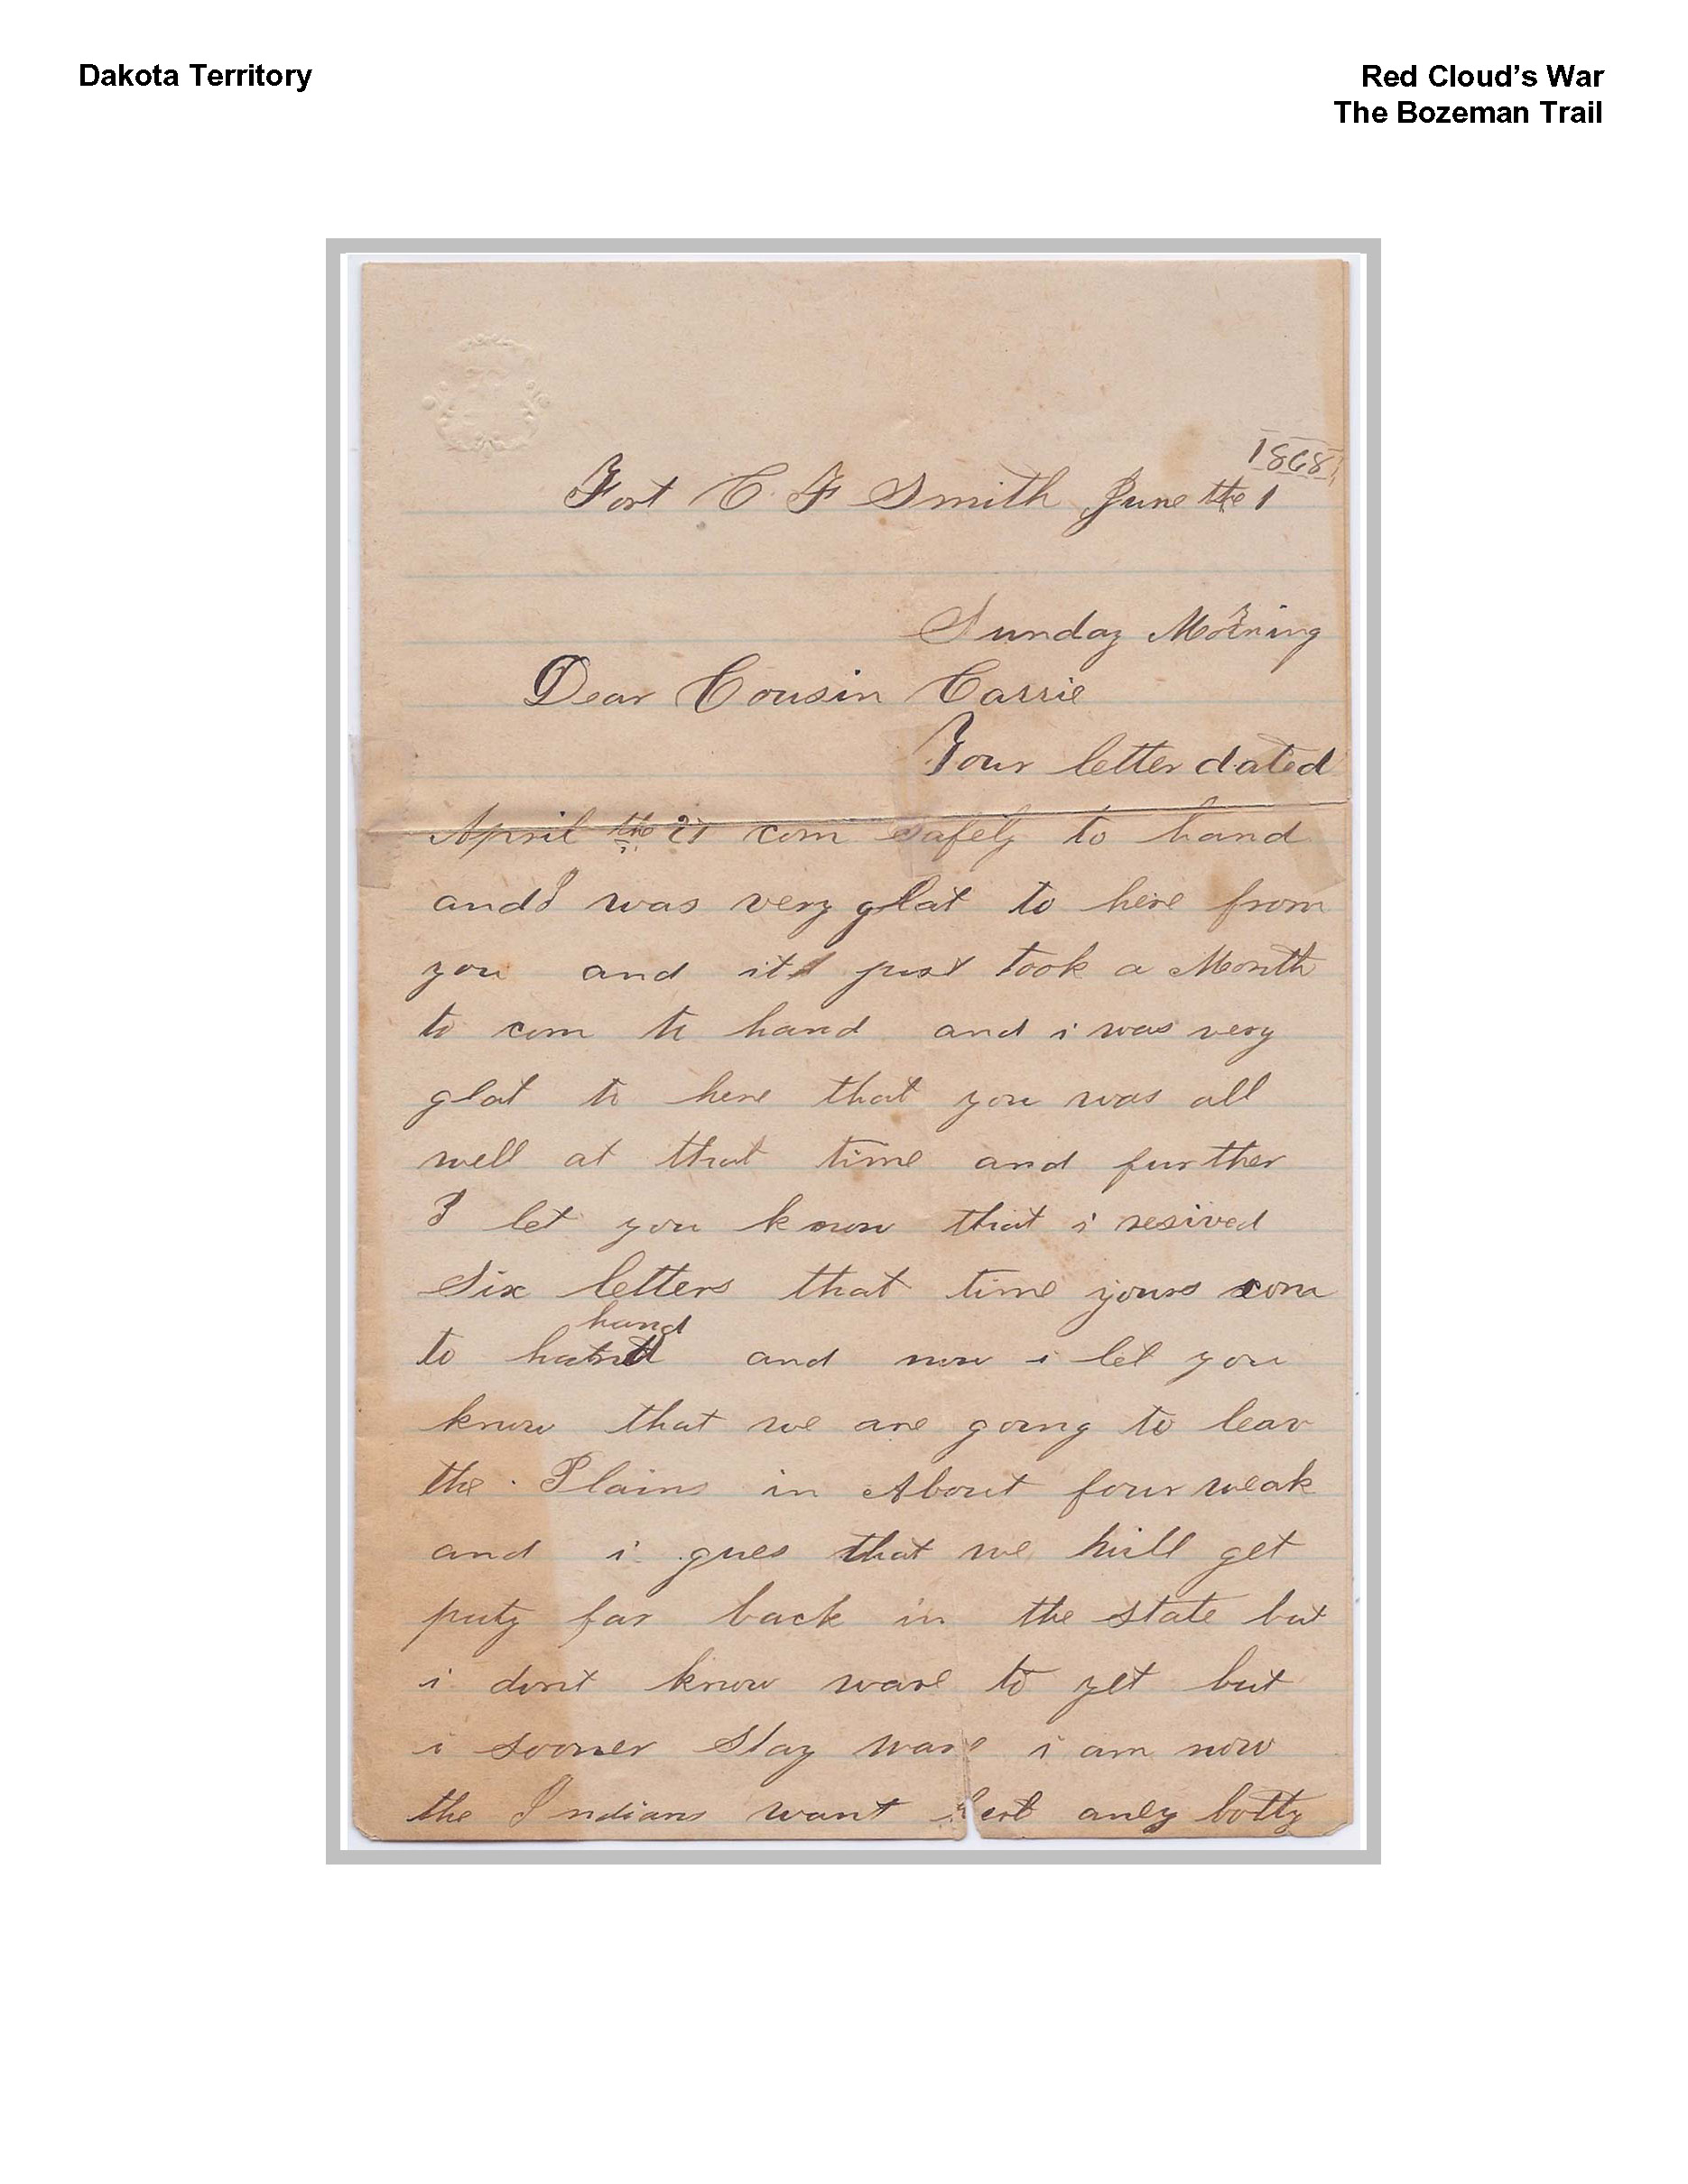 Dakota Territory
Red Cloud’s War
The Bozeman Trail
1868
Fort C. F Smith June the 1
Sunday Morning
Dear Cousin Carrie
Your letter dated
April the com Safely to hand
and I was very glat to here from
you and it just took a Month
to com to hand and i was very
glat to here that you was all
well at that time and further
I let you know that i resived
Six letters that time yours com
hand
to and now i let you
know that we are going to leav
the Plains in About four weak
and i gues that we will get
puty far back in the state but
i dont know ware to yet but
i sooner Stay ware i am now
the Indians want hert aney botty